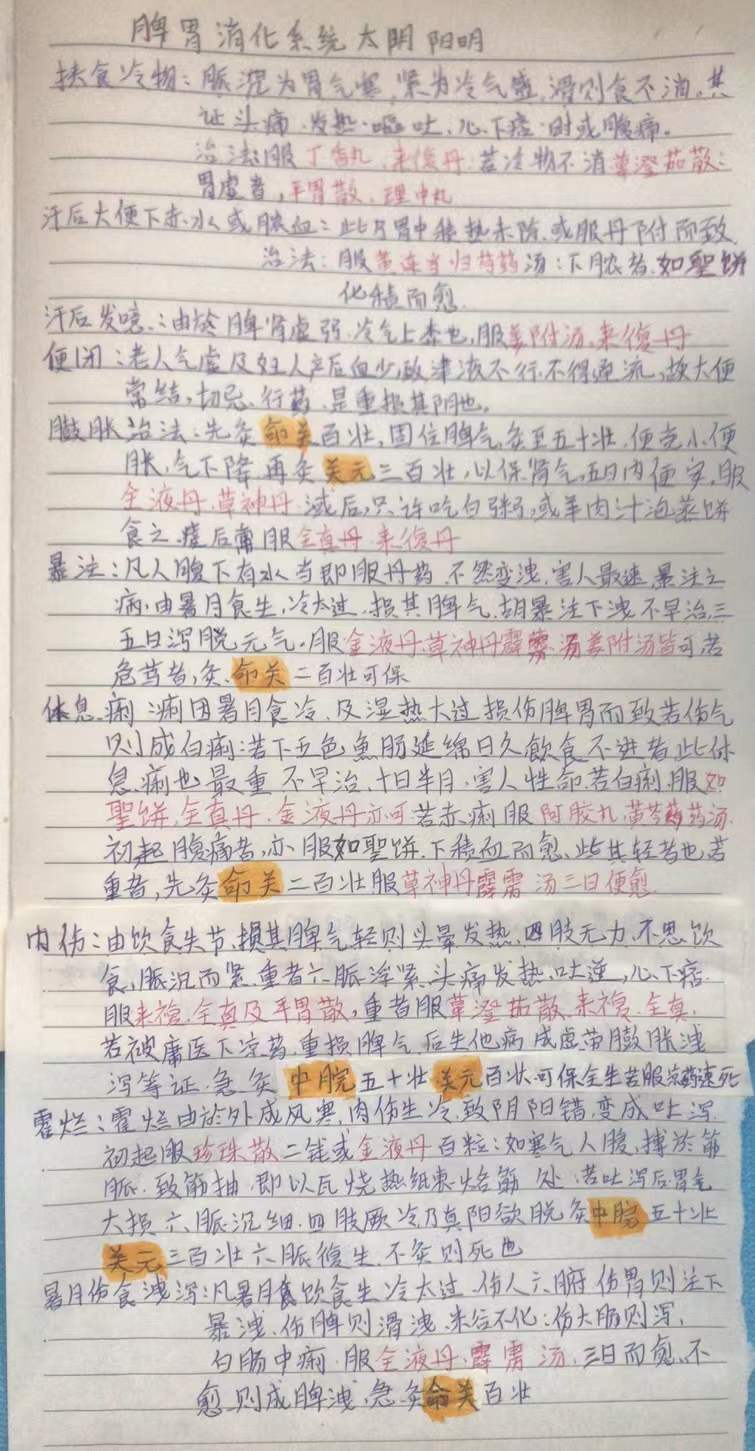 脾胃消化系统太阴阳明
挟食冷物：脈沉为胃气寒，紧为冷气盛，滑则食不消，其
证头痛、发热、呕吐、心下痞，时或腹痛。
治法：服丁香丸、来復丹，若冷物不消，蓽澄茄散：
胃虚者，平胃散、理中丸
汗后大便下赤水或脓血：此乃胃中积热未除，或服丹附而致
治法：服黄连当归芍药汤：下脓者，如聖饼
化积而愈
汗后发噫：由於脾肾虚弱，冷气上奔也，服姜附汤、来復丹
便闭：老人气虚及妇人产后血少，故津液不行，不得通流，故大便
常结，切忌行药，是重损其阴也。
臌胀治法：先灸命关百壮，固住脾气，灸至五十壮，便觉小便
胀，气下降，再灸关元三百壮，以保肾气，五日内便安，服
金液丹、草神丹，减后，只许吃白粥，或羊肉汁泡蒸饼
食之，瘥后常服全真丹、来復丹
暴注：凡人腹下有水，当即服丹药，不然变洩，害人最速，暴注之
病，由暑月食生，冷太过，损其脾气，胡暴注下洩，不早治，三
五日泻脱元气。服金液丹、草神丹、霹雳汤、姜附汤皆可，若
危笃者，灸命关二百壮可保
休息痢：痢因暑月食冷，及湿热大过，损伤脾胃而致，若伤气
则成白痢：若下五色鱼肠，延绵日久，飲食不进者，此休
息痢也，最重，不早治，十日半月，害人性命，若白痢，服如
聖饼、全真丹、金液丹亦可，若赤痢服阿胶丸、黄芩芍药汤，
初起腹痛者，亦服如聖饼，下积血而愈，此其轻者也，若
重者，先灸命关二百壮，服草神丹霹雳汤三日便愈
内伤：由饮食失节，损其脾气，轻则头晕发热，四肢无力，不思饮
食，脈沉而紧，重者六脈浮紧，头痛发热，吐逆，心下痞，
服来復、全真及平胃散，重者服蓽澄茄散、来復、全真，
若被庸医下凉药，重损脾气，后生他病，成虚劳臌胀洩
泻等证，急灸中脘五十壮，关元百壮，可保全生，若服凉药速死
霍烂：霍烂由於外成风寒，肉伤生冷，致阴阳错，变成吐泻，
初起服珍珠散二钱或金液丹百粒：如寒气人腹，搏於筋
脈，致筋抽，即以瓦烧热纸裹烙筋处：若吐泻后胃气
大损，六脈沉细，四肢厥冷，乃真阳欲脱，灸中脘五十壮
关元三百壮，六脈復生，不灸则死也
暑月伤食洩泻：凡暑月饮食生冷太过，伤人六腑，伤胃则注下
暴洩，伤脾则滑洩，米谷不化：伤大肠则泻，
白肠中痢，服金液丹、霹雳汤，三日而愈，不
愈则成脾洩，急灸命关百壮